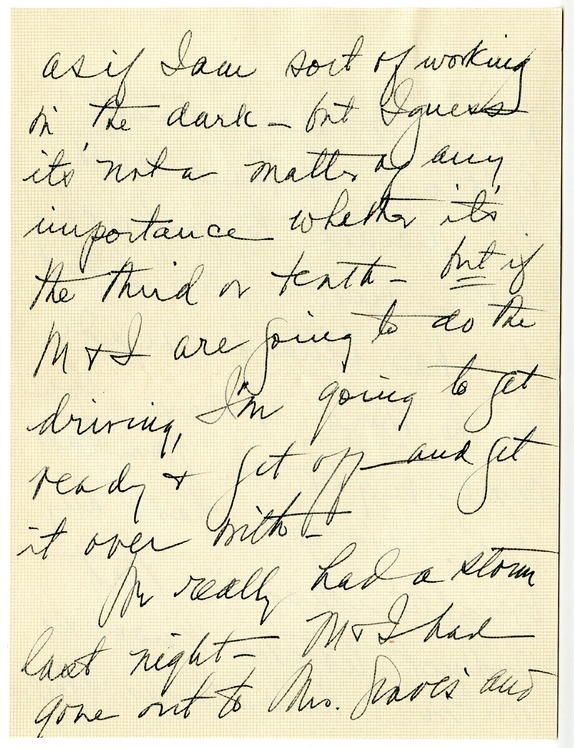 as if I am sort of working
in the dark – but I guess
it's not a matter of any
importance whether it's
the third or tenth – but if
M & I are going to do the
driving, I'm going to get
ready & get off – and get
it over with –
We really had a storm
last night – M & I had
gone out to Mrs. Graves' and